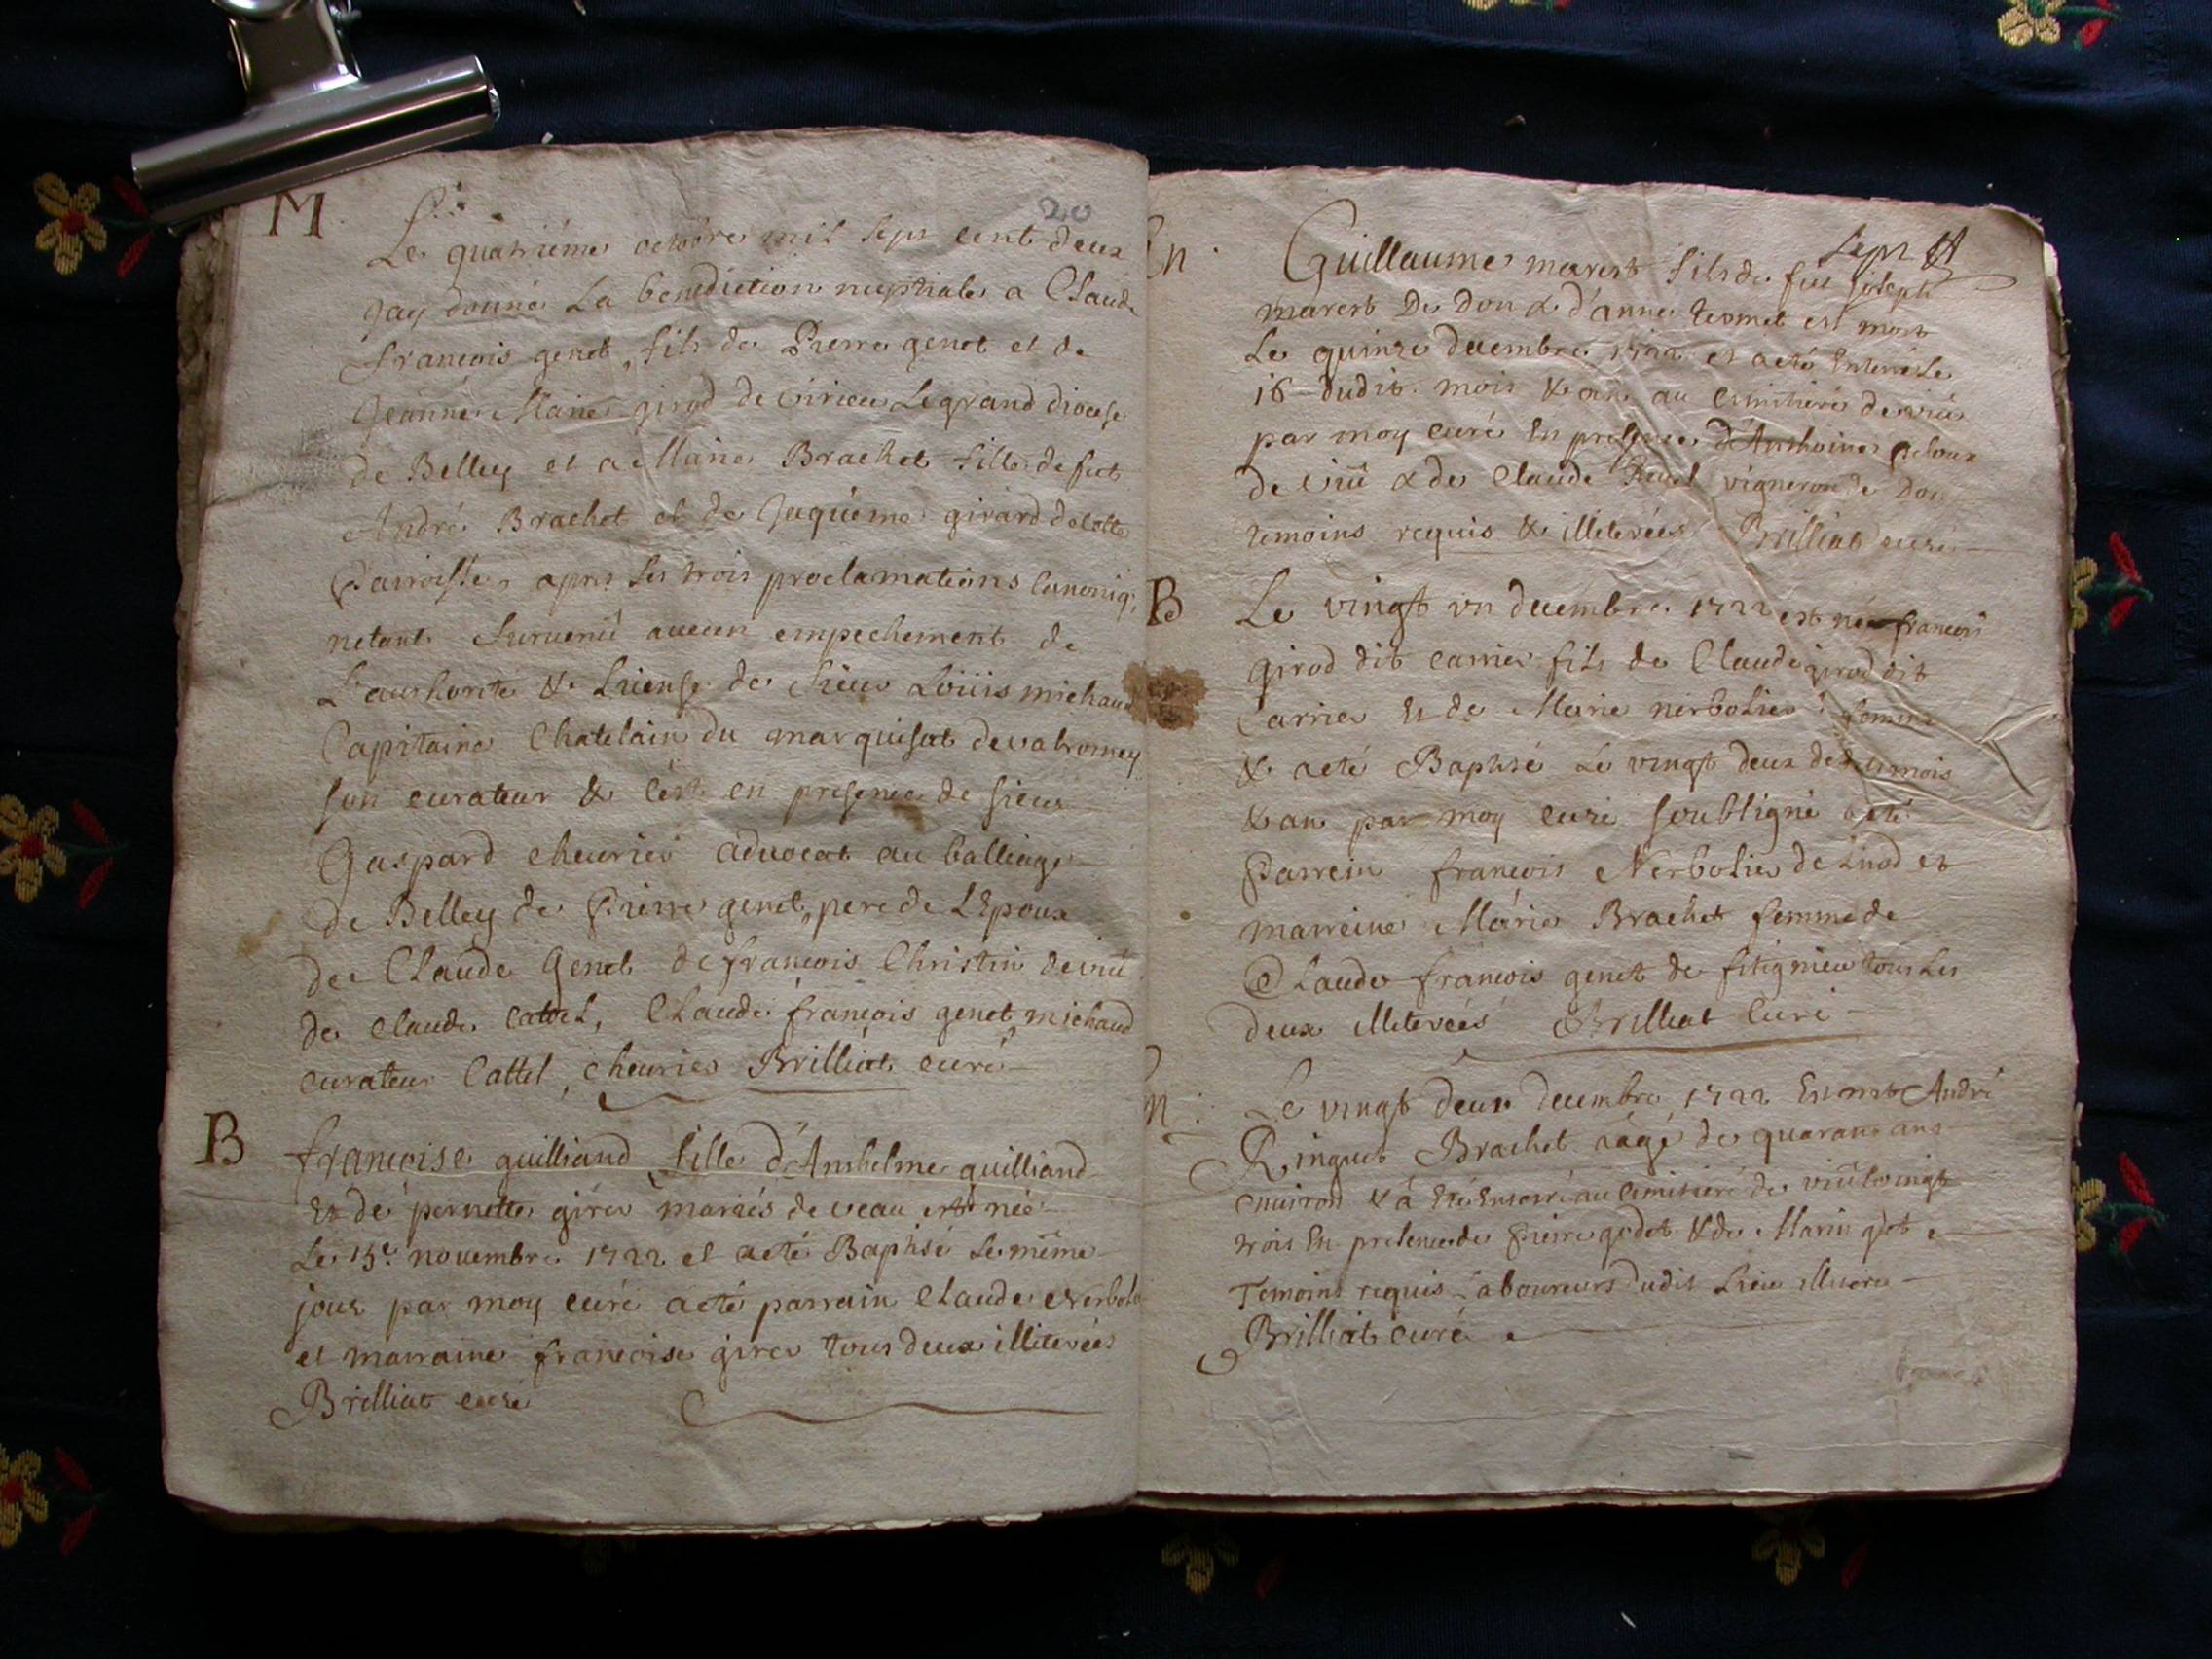 M.
20
Le quatriéme octobre mil sept cent deux
Jay donné La benediction nuptiale a Claude
francois genet, fils de Pierre genet et de
Jeanne Marie girod de virieu Le grand diocese
de Belley et a Marie Brachet fille de feu
André Brachet et de Jaquéme girard de cette
Parroisse, apres les trois proclamations Canoniq;
netant Survenû aucun empechement de
L'authorité & License de Sieur Loüis michaud
Capitaine Chatelain du marquisat de valromey
son curateur & C'est en presence de sieur
Gaspard cheurier advocat au balliage
de Belley de Pierre genet, pere de LEpoux
de Claude Genet de francois Christin de viû
de claude Cattel, Claude françois genet michaud
curateur Cattel, cheurier Brilliat curé
B
francoise guilliand fille d'Anthelme guilliand
Et de pernette girer mariés de veau est née
Le 15e. novembre 1722 et a eté Baptisé Le même
jour par moy curé a eté parrain Claude Nerbolie
et marraine francoise girer tous deux illiterées
Brilliat curé
En.
Sept
Guillaume marest fils de feu Joseph
marest De Don & d'anne termet est mort
Le quinze decembre 1722 et a eté Enterré Le
16 dudit mois & an au cimitiere de viû
par moy curé En presence d'Anthoine
de viû & de Claude vigneron de Don
temoins requis & illiterées Brilliat curé
B
Le vingt un decembre 1722 est né francois
girod dit carrier fils de Claude girod dit
Carrier Et de Marie nerbolier
& a eté Baptisé Le vingt deux du mois
& an par moy curé soubsigné a eté
Parrein francois Nerbolier de Luod et
marreine Marie Brachet femme de
Claude francois genet de fitignieu tous Les
deux illiterées Brilliat Curé
n.
Le vingt deux decembre 1722 Est mort André
Ringuet Brachet aagé de quarante ans
environ & a Eté Enterré au Cimitiere de viû Le vingt
trois En presence de Pierre godet & de Marin godet
Temoins requis Laboureurs dudit Lieu
Brilliat curé